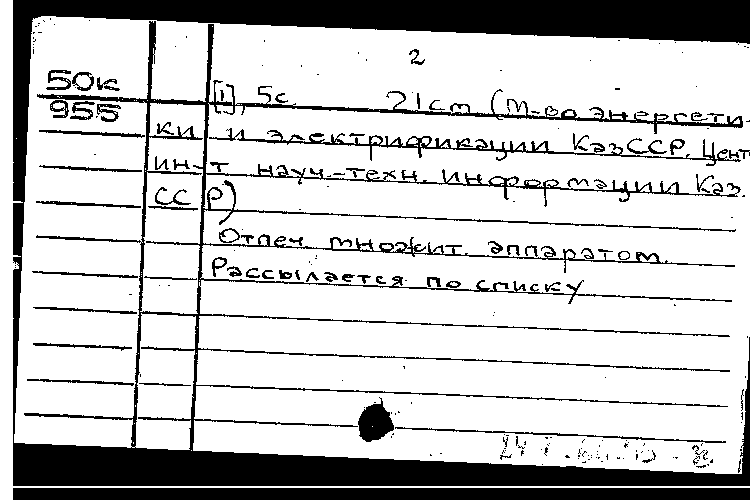 2
50к
955
[1], 5с. 21см (М-во энергети-
ки и электрификации КазССР. Цент.
ин-т науч.-техн. информации Каз.
ССР)
Отпеч. множит. аппаратом.
Рассылается по списку